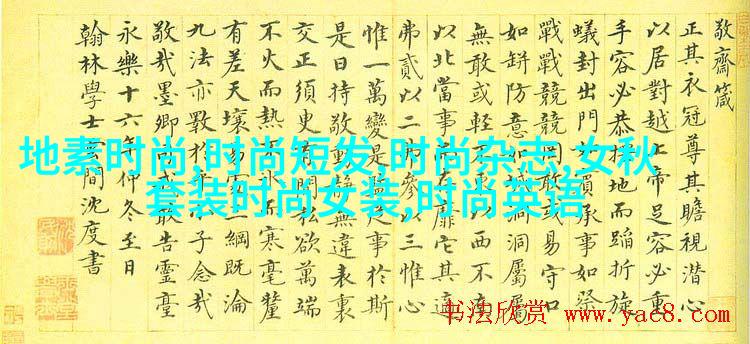 敬齋箴
正其衣冠尊其瞻視潛心
以居對越上帝足容必重
手容必恭擇地而蹈折旋
蟻封出門如賓承事如祭
戰戰兢兢罔敢或易守口
如缾防意如城洞洞屬屬
無敢或輕不東以西不南
以北當事而存靡它其適
弗貳以二弗參以三惟心
惟一萬變是監從事於斯
是日持敬動靜無違表裏
交正須臾有間私欲萬端
不火而熱不冰而寒毫釐
有差天壤易處三綱既淪
九法亦斁於乎小子念哉
敬哉墨卿司戒敢告靈臺
永樂十六年仲冬至日
翰林學士雲間沈度書
地素时尚,时尚短发,时尚杂志,女秋
套装时尚女装,时尚英语
书法欣赏 www.yac8.com